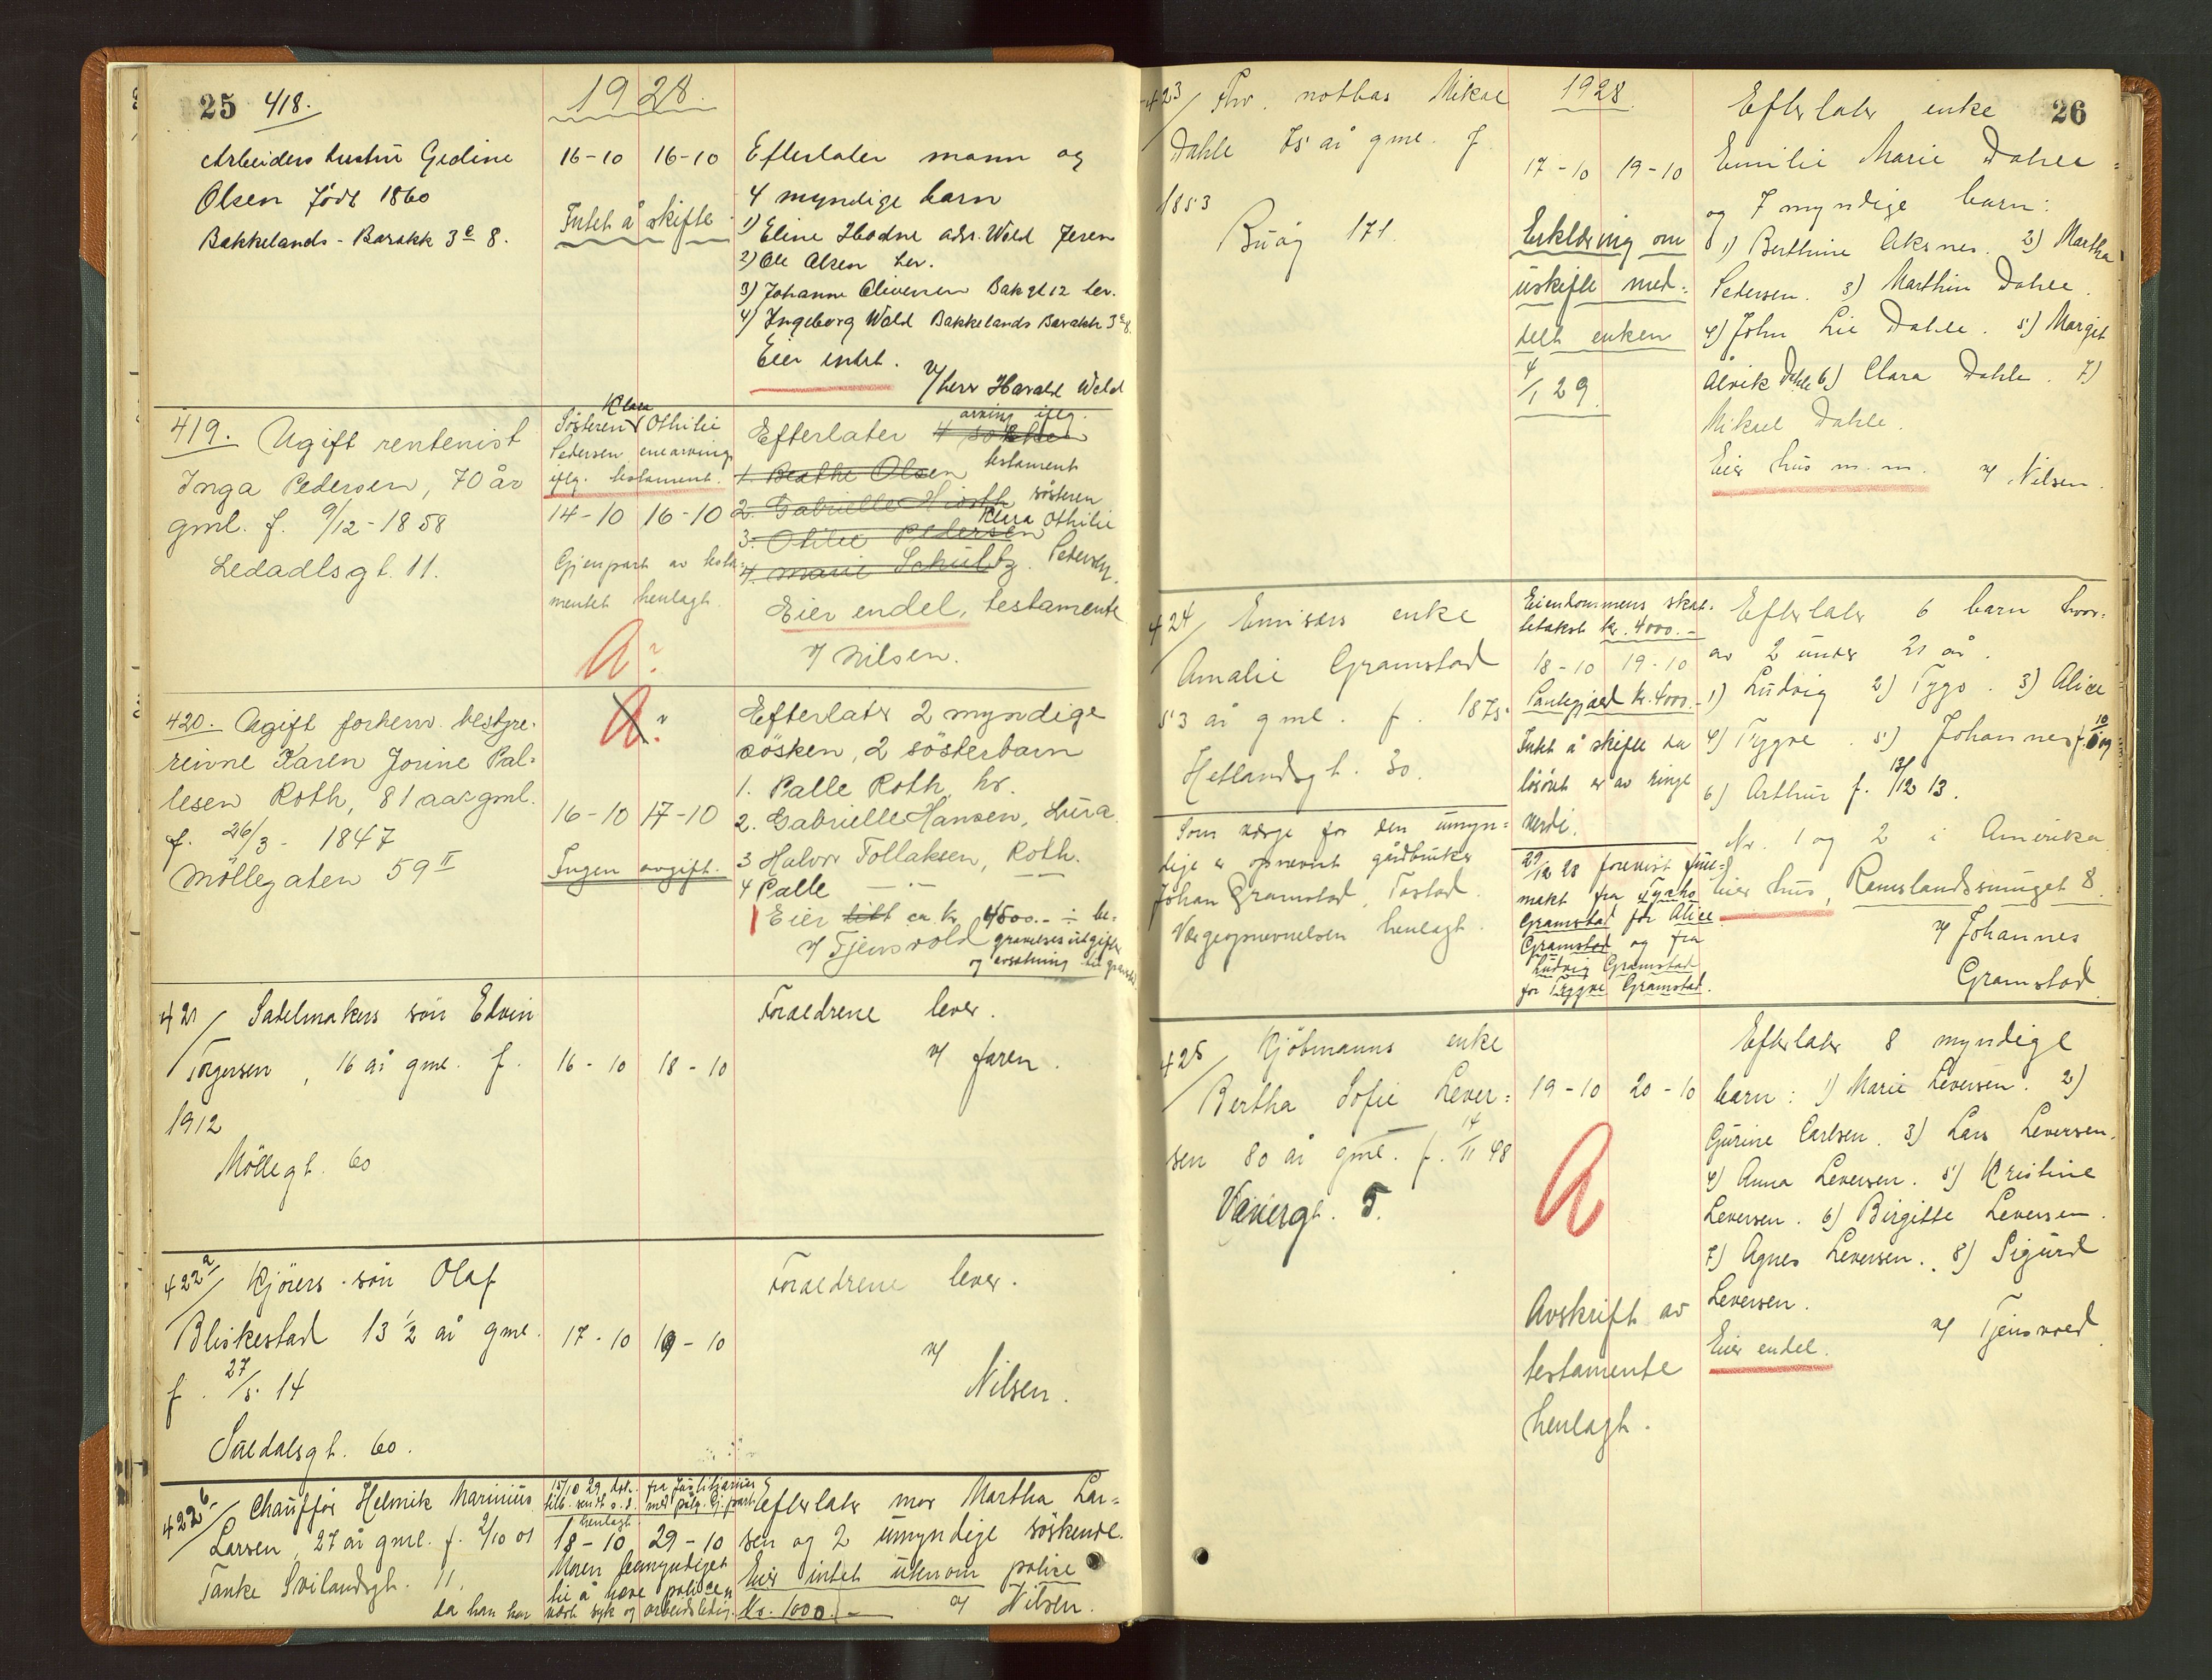 25 418.
1928.
Arbeiders hustru Gedine
Olsen født 1860
Bakkelands-Barakk 3e 8.
16-10 16-10
Intet å skifte
Efterlater mann og
4 myndige barn
1) Eline Hodne adr. Wold Jeren
2) Ole Olsen her.
3) Johanne Olivesen Bakgt 12 her.
4) Ingeborg Wold Bakkelands Barakk 3e 8.
Eier intet.
v/ herr Harald Wold
419. Ugift rentenist
Inga Pedersen, 70 år
gml. f. 9/12-1858
Ledaalsgt. 11.
Søsteren Klara Othilie
Pedersen enearving
iflg. testament.
14-10 16-10
Gjenpart av testa-
mentet henlagt.
A?
Efterlater 4 søsken arving iflg.
testament
1. Beathe Olsen
2. Gabrielle Hiorth søsteren
3. Otilie Pedersen Klara Othilie
4. Marie Schultz. Pedersen.
Eier endel, testamente
v/ Nilsen.
420. Ugift forhenv. bestyre-
rinne Karen Jorine Pal-
lesen Roth, 81 aar gml.
f. 26/3 - 1847
Möllegaten 59 II
A?
16-10 17-10
Ingen avgift.
Efterlater 2 myndige
søsken, 2 søsterbarn
1. Palle Roth, hr.
2. Gabrielle Hansen, Lura.
3 Halvor Tollaksen, Roth.
4 Palle —"—
Eier litt ca. kr. 4500.- ÷ be-
gravelsesutgifter
og ersatning til gravsted
v/ Tjensvold
421/ Sadelmakers søn Edvin
Torgersen, 16 år gml. f.
1912
Möllegt. 60
16-10 18-10
Foraeldrene lever.
v/ faren.
422a/ Kjörers søn Olaf
Bliskestad 13 1/2 år gml.
f. 27/5. 14
Suldalsgt. 60.
17-10 19-10
Foraeldrene lever.
v/
Nilsen.
422b/ Chauffør Helmik Marinius
Larsen, 27 år gml. f. 2/10 01
Tanke Svilandsgt. 11.
henlagt
18-10 29-10
Moren bemyndiget
til å heve policen
da han har vært syk og arbeidsledig.
Efterlater mor Martha Lar-
sen og 2 umyndige søskende.
Eier intet utenom police
kr. 1000.- v/ Nilsen.
26
1928.
423/ Fhv. notbas Mikal
Dahle 75 år gml. f.
1853
Buøy 171
17-10 19-10
Erklæring om
uskifte med-
delt enken
4/1 29.
Efterlater enke
Emilie Marie Dahle
og 7 myndige barn:
1) Berthine Aksnes. 2) Martha
Pedersen. 3) Marthin Dahle.
4) John Lie Dahle. 5) Margit
Ålvik Dahle 6) Clara Dahle. 7)
Mikael Dahle.
Eier hus m.m. v/ Nilsen.
424/ Emisærs enke
Amalie Gramstad
53 år gml. f. 1875.
Hetlandsgt. 30.
Som verge for den umyn-
dige er opnevnt gårdbruker
Johan Gramstad, Tastad.
Vergeopnevnelsen henlagt.
Eiendommens skat-
tetakst kr. 4000.-
18-10 19-10
Pantegjæld kr. 4000.-
Intet å skifte da
løsøret er av ringe
verdi.
29/12 28 forevist full-
makt fra Tycho
Gramstad for Alice
Gramstad og fra
Ludvig Gramstad
for Trygve Gramstad.
Efterlater 6 barn hvor-
av 2 under 21 år.
1) Ludvig 2) Tygo. 3) Alice
4) Trygve. 5) Johannes f. 10/8 09
6) Arthur f. 13/12 13.
Nr. 1 og 2 i Amerika
eier hus, Ramslandssmuget 8.
v/ Johannes
Gramstad
425/ Kjöbmanns enke
Bertha Sofie Lever-
sen 80 år gml. f. 14/11 48
Vaisenergt. 5.
19-10 20-10
A
Avskrift av
testamente
henlagt.
Efterlater 8 myndige
barn: 1) Marie Leversen. 2)
Gurine Carlsen. 3) Lars Leversen.
4) Anna Leversen. 5) Kristine
Leversen. 6) Birgitte Leversen.
7) Agnes Leversen. 8) Sigurd
Leversen.
Eier endel. v/ Tjensvold.